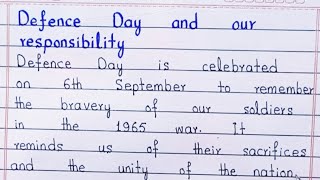 Defence Day and our
responsibility
Defence Day is celebrated
on 6th September to remember
the bravery of our soldiers
in the 1965 war. It
reminds us of their sacrifices
and the unity of the nation.